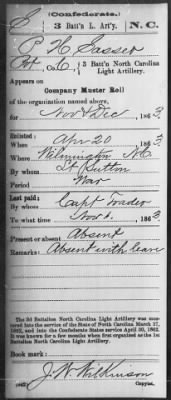 (Confederate.)
3 Batt'n L. Art'y. N. C.
P. H. Sasser
Pvt, Co. C, 3 Batt'n North Carolina
Light Artillery.
Appears on
Company Muster Roll
of the organization named above,
for Nov & Dec, 1863.
Enlisted:
When Apr 20, 1863.
Where Wilmington N.C.
By whom Lt Sutton
Period War
Last paid:
By whom Capt Trader
To what time Nov 1, 1863.
Present or absent Absent
Remarks: Absent with leave
The 3d Battalion North Carolina Light Artillery was mustered into the service of the State of North Carolina March 17, 1862, and into the Confederate States service April 30, 1862. It was known for a few months when first organized as the 1st Battalion North Carolina Light Artillery.
Book mark:
J. W. Wilkinson
(642) Copyist.